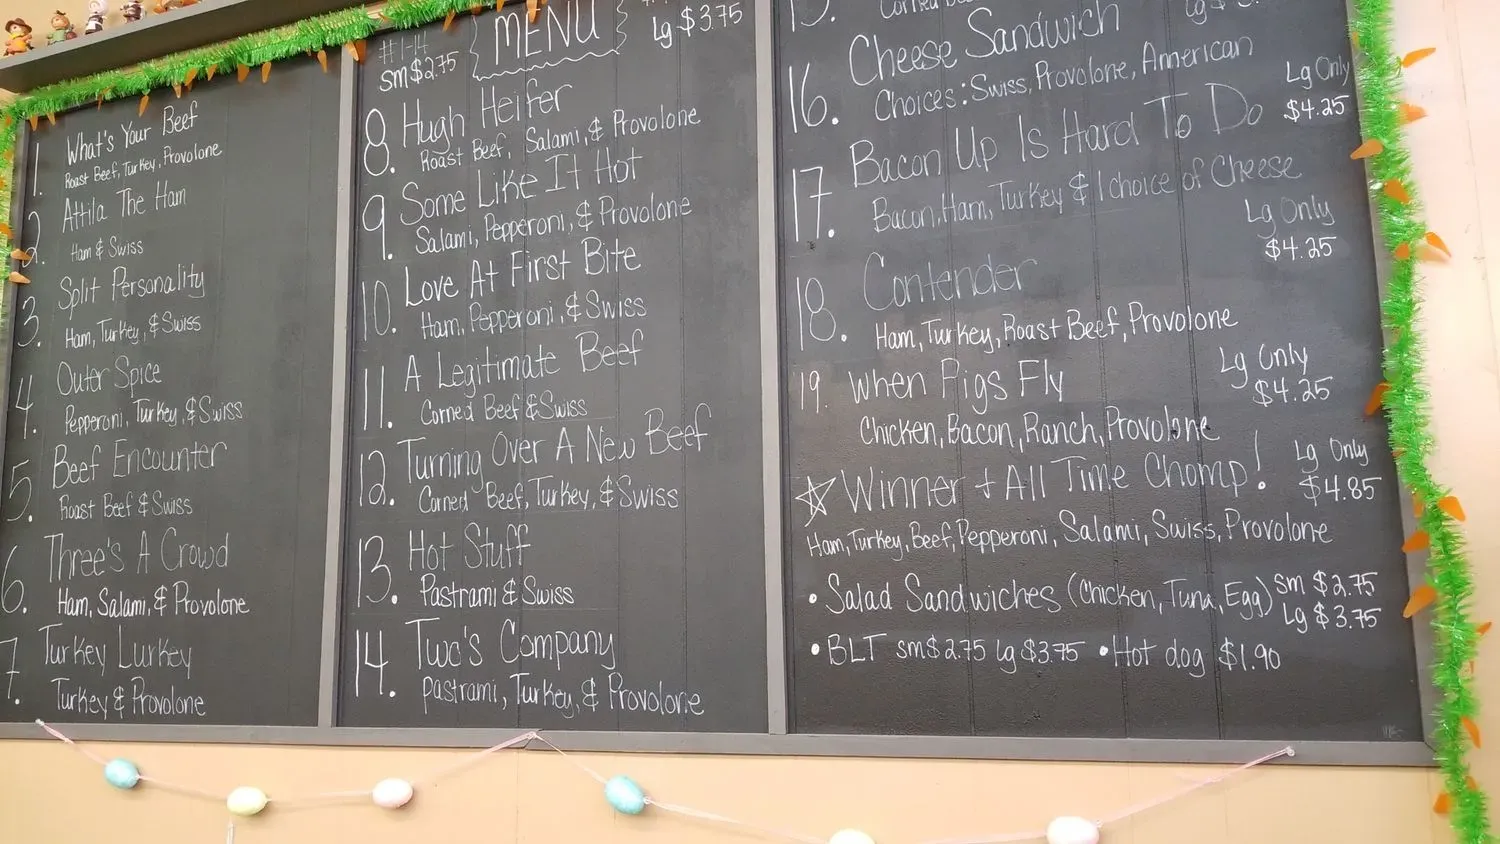 1. What's Your Beef
Roast Beef, Turkey, Provolone
2. Attila The Ham
Ham & Swiss
3. Split Personality
Ham, Turkey, & Swiss
4. Outer Spice
Pepperoni, Turkey, & Swiss
5. Beef Encounter
Roast Beef & Swiss
6. Three's A Crowd
Ham, Salami, & Provolone
7. Turkey Lurkey
Turkey & Provolone
#1-14
sm $2.75
MENU
Lg $3.75
8. Hugh Heifer
Roast Beef, Salami, & Provolone
9. Some Like It Hot
Salami, Pepperoni, & Provolone
10. Love At First Bite
Ham, Pepperoni, & Swiss
11. A Legitimate Beef
Corned Beef & Swiss
12. Turning Over A New Beef
Corned Beef, Turkey, & Swiss
13. Hot Stuff
Pastrami & Swiss
14. Two's Company
Pastrami, Turkey, & Provolone
15.
Corned
16. Cheese Sandwich
Choices: Swiss, Provolone, American
Lg Only
$4.25
17. Bacon Up Is Hard To Do
Bacon, Ham, Turkey & 1 choice of Cheese
Lg Only
$4.25
18. Contender
Ham, Turkey, Roast Beef, Provolone
Lg Only
$4.25
19. When Pigs Fly
Chicken, Bacon, Ranch, Provolone
Lg Only
$4.85
☆ Winner + All Time Chomp!
Ham, Turkey, Beef, Pepperoni, Salami, Swiss, Provolone
• Salad Sandwiches (Chicken, Tuna, Egg) sm $2.75
Lg $3.75
• BLT sm $2.75 lg $3.75 • Hot dog $1.90